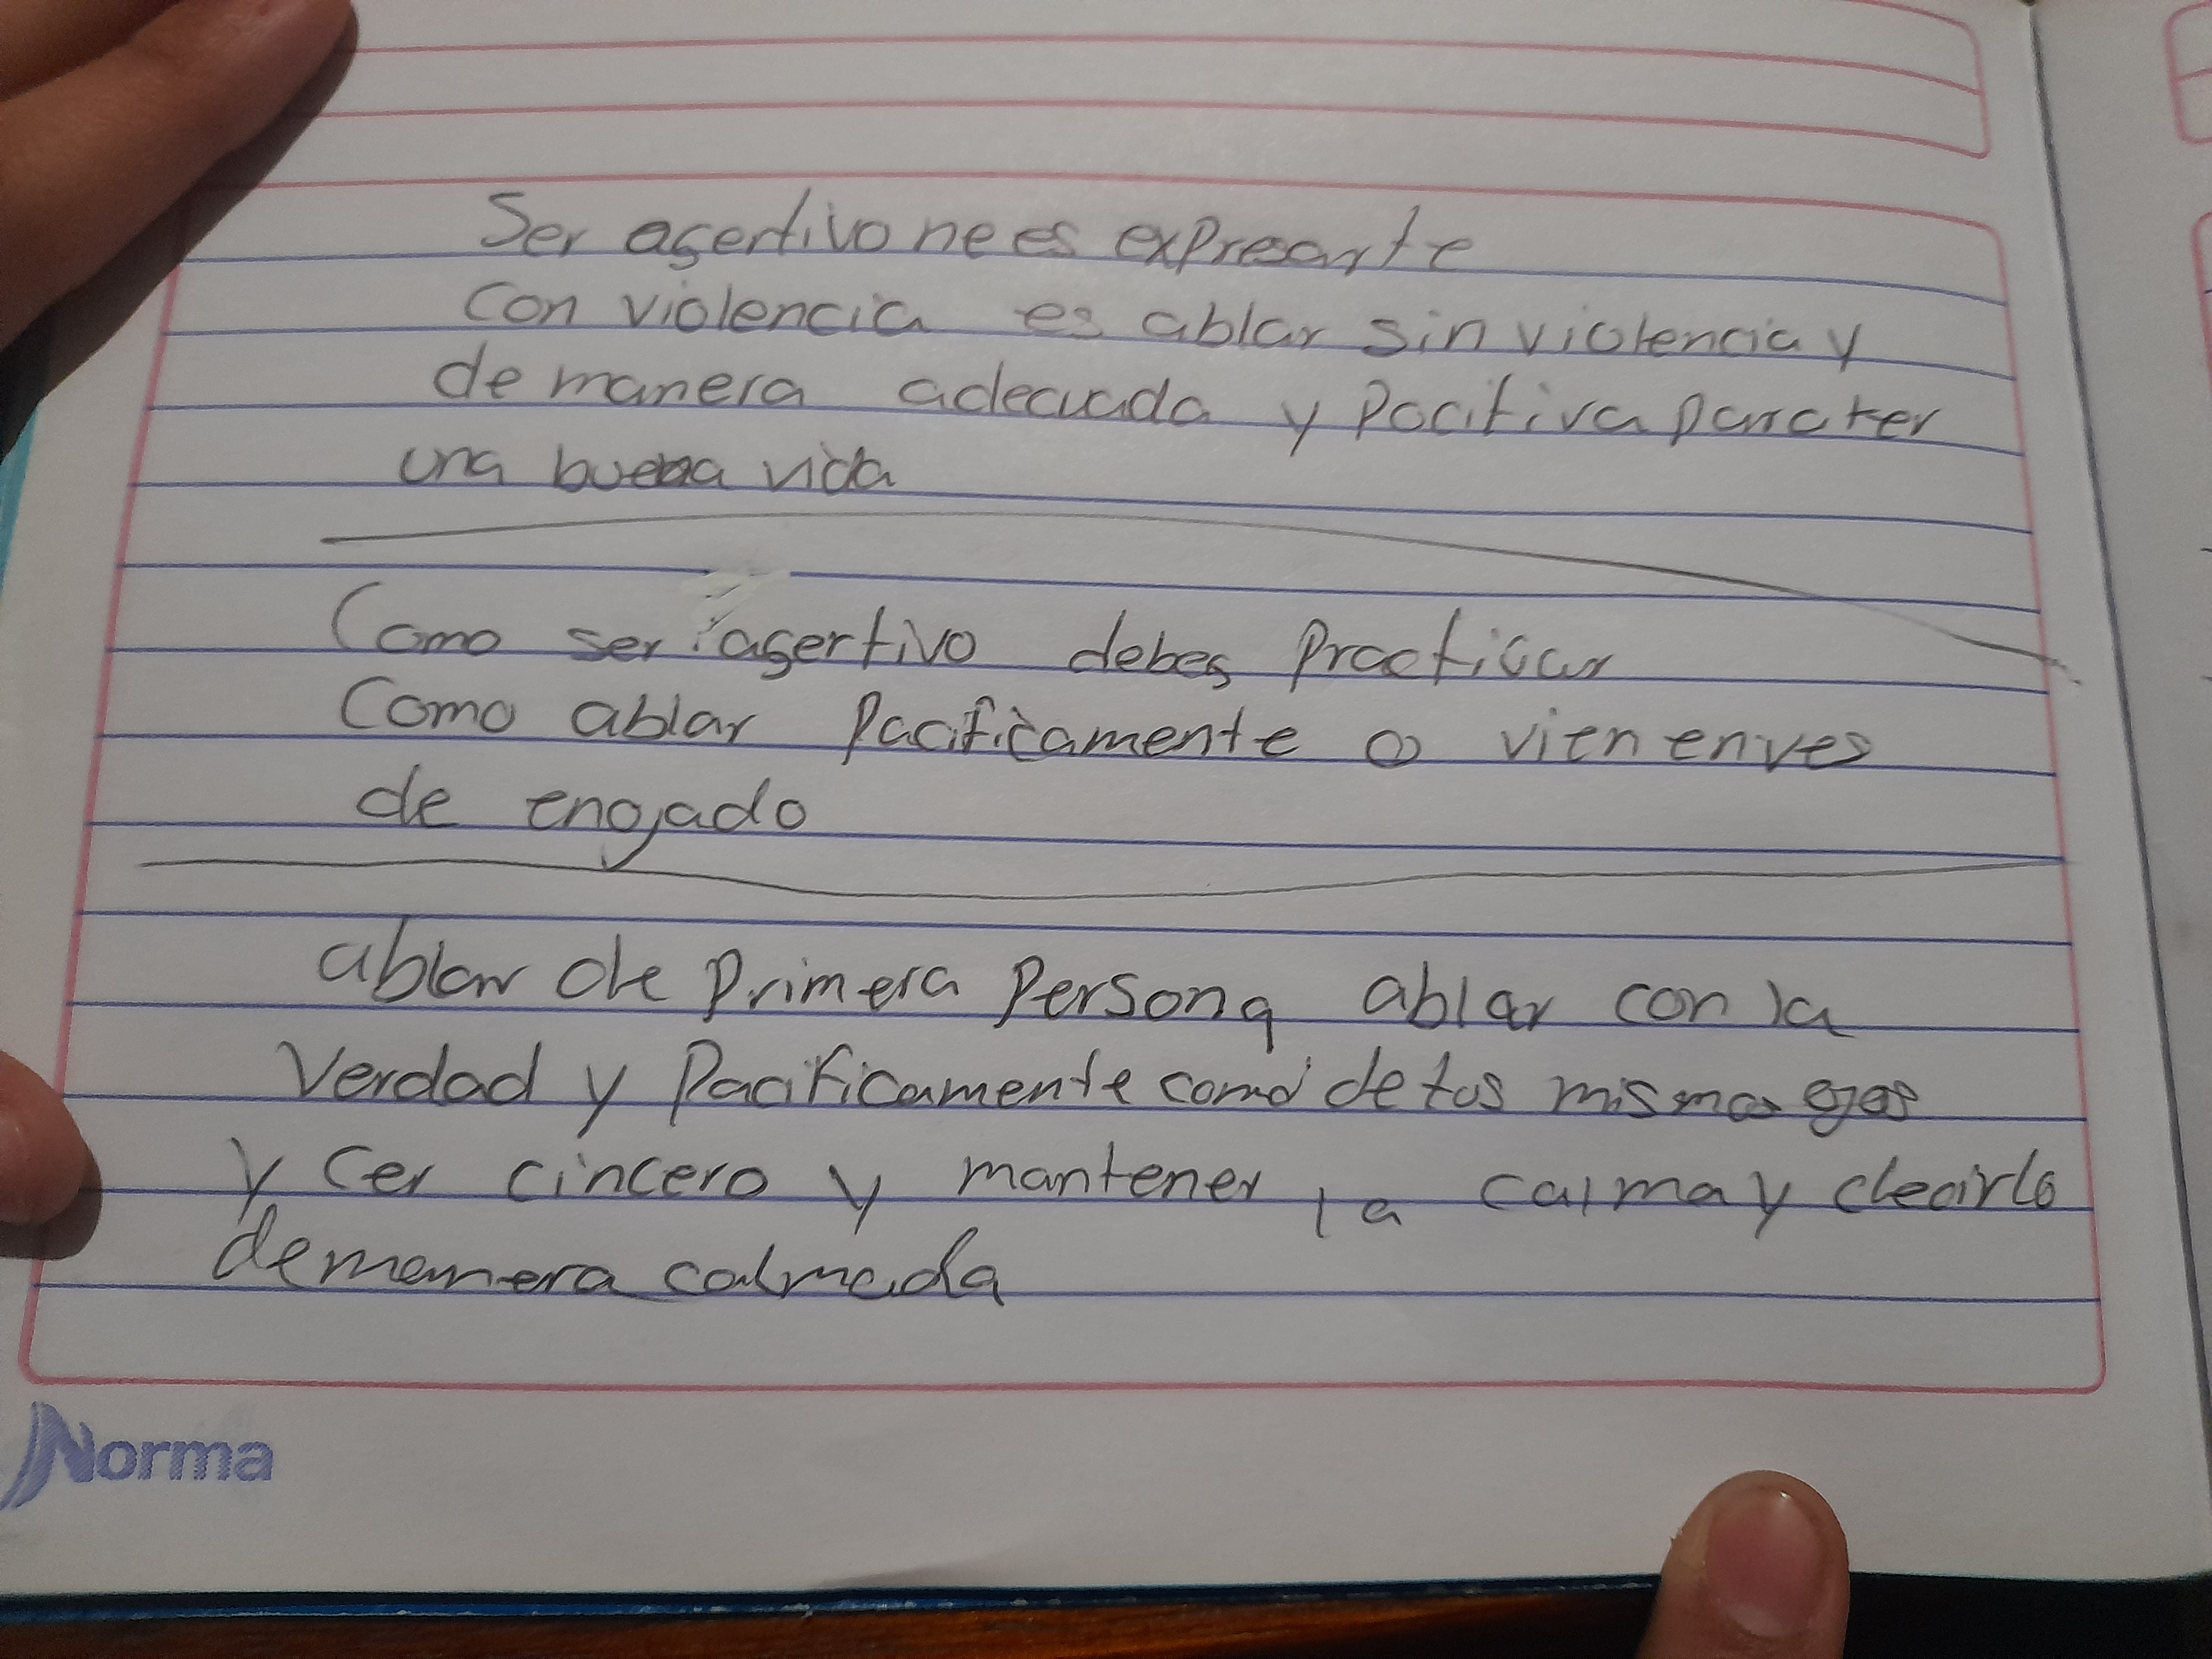 Ser asertivo ne es expresarte
con violencia es ablar sin violencia y
de manera adecuada y pocitiva para ter
una buena vida
Como ser asertivo debes practicar
Como ablar pacificamente o vien enves
de enojado
ablar de primera persona ablar con la
Verdad y pacificamente como de tus mismos ojos
y cer cincero y mantener la calma y decirlo
de manera calmada
Norma